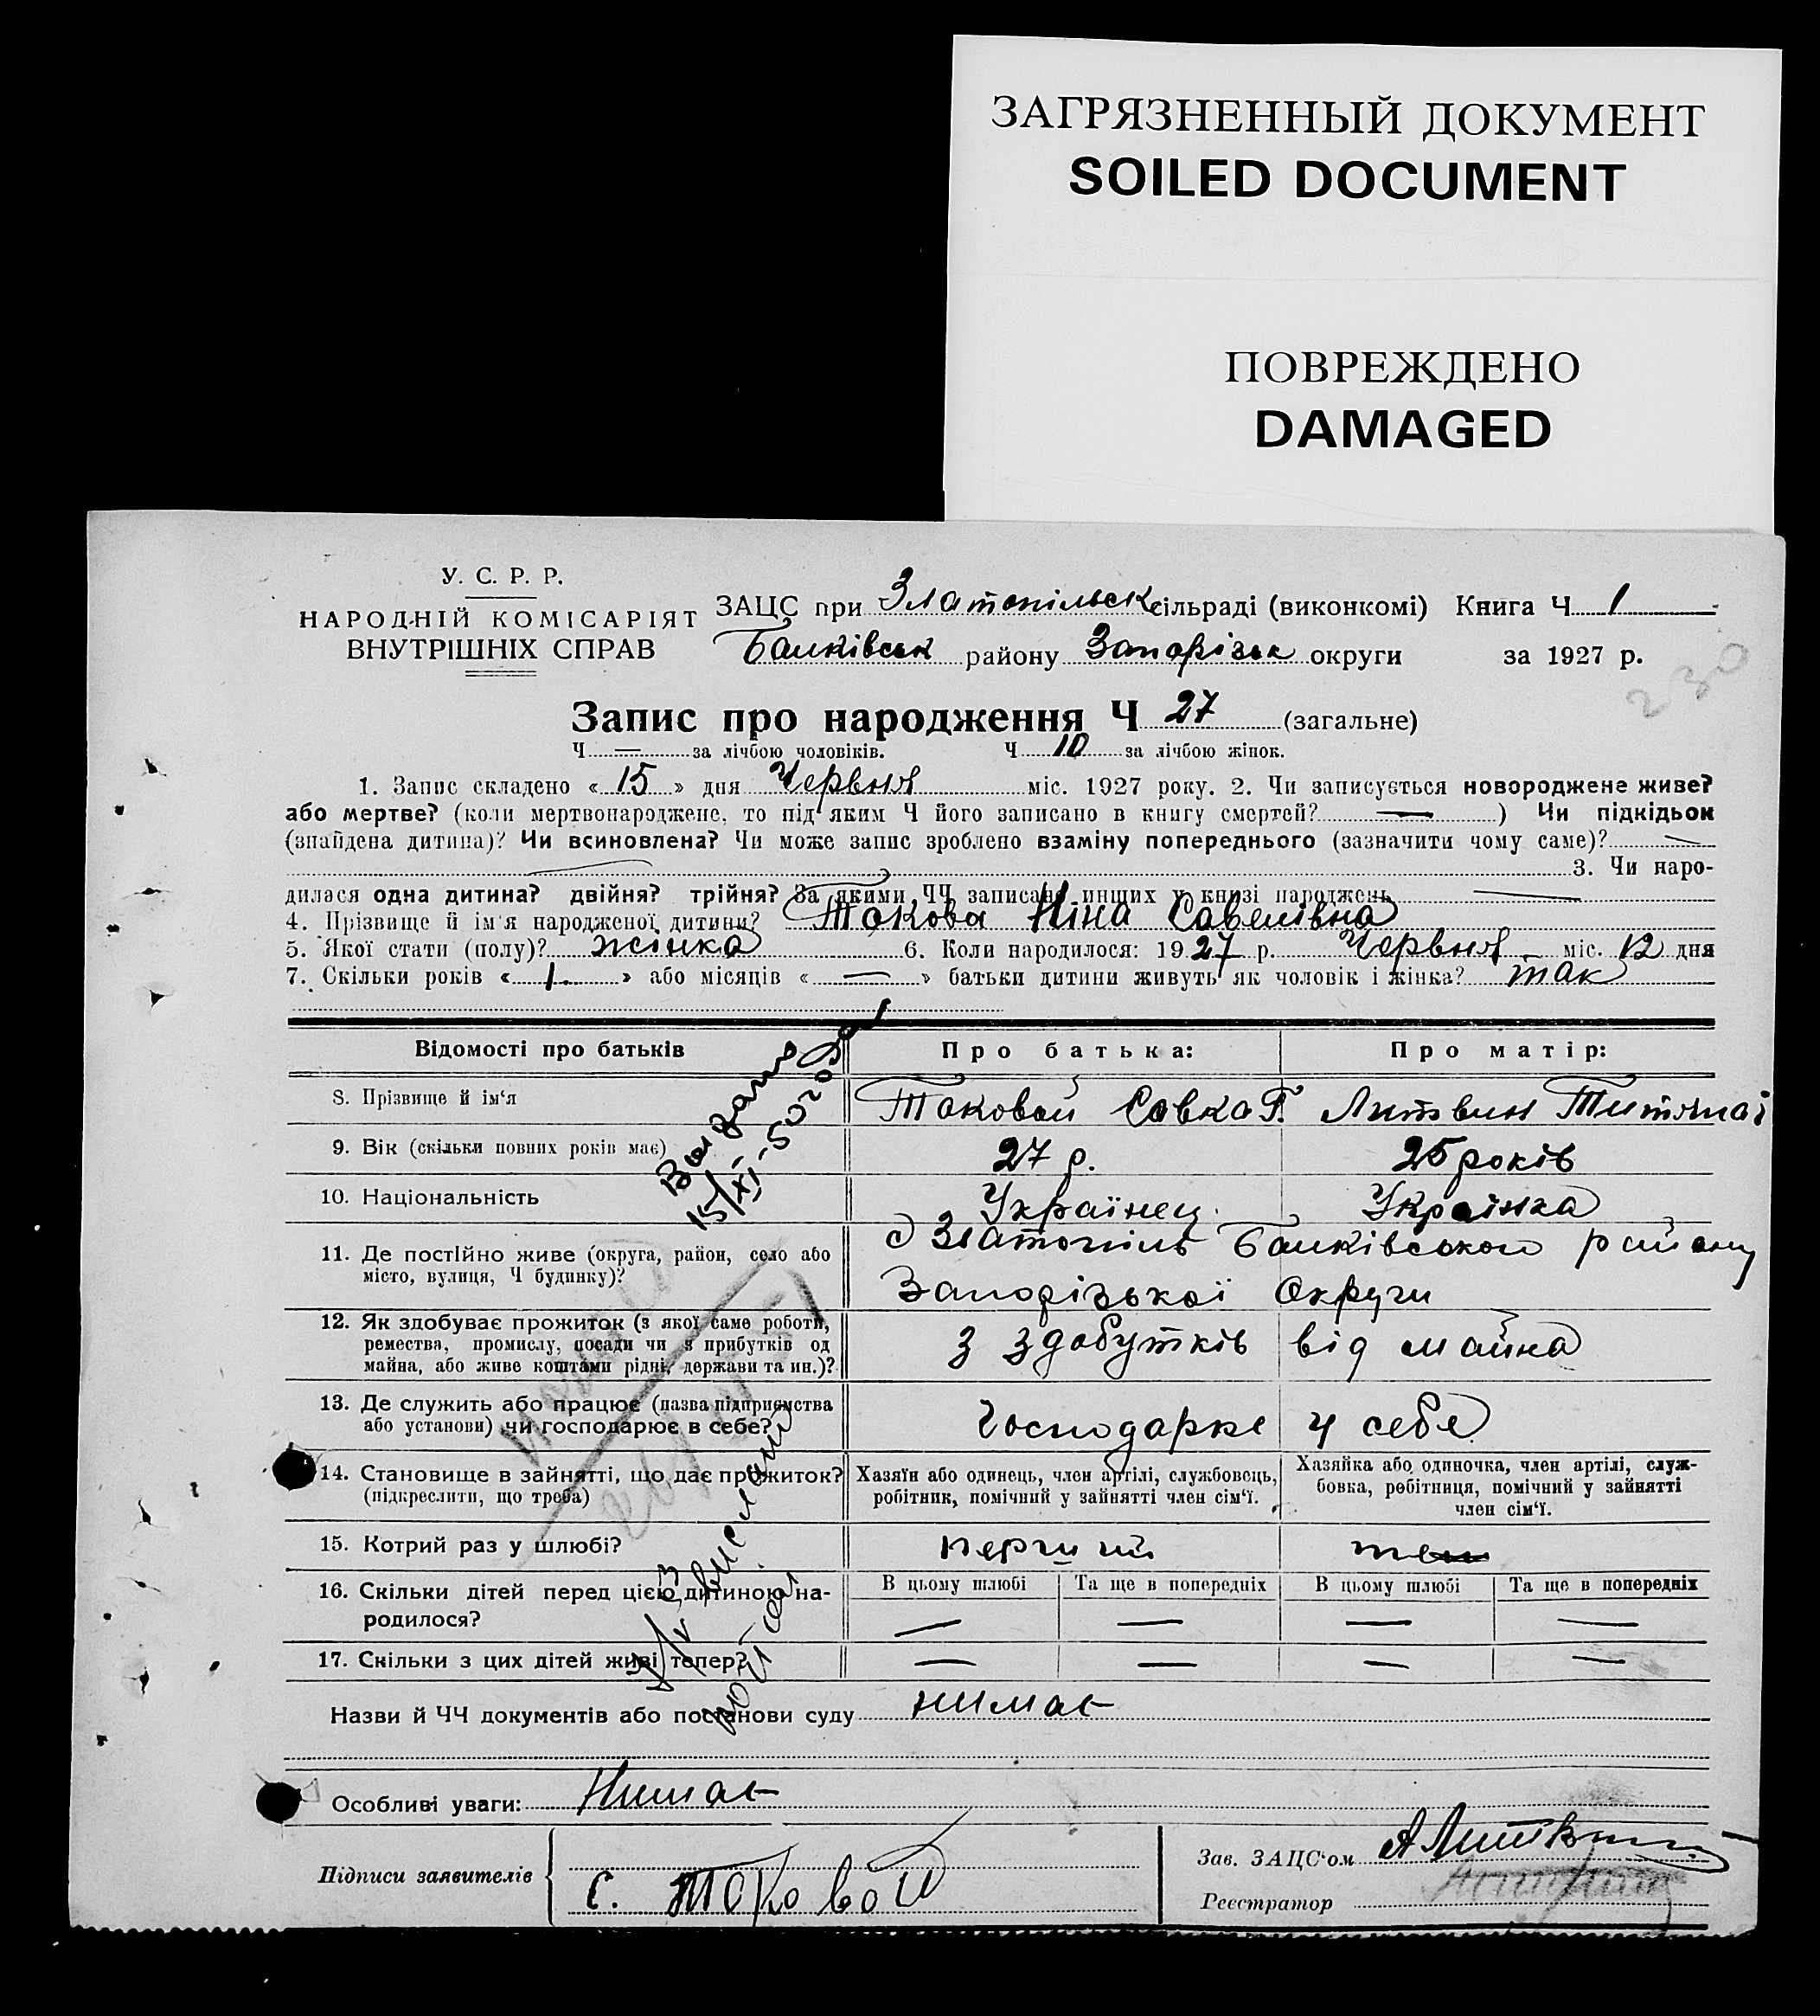 ЗАГРЯЗНЕННЫЙ ДОКУМЕНТ
SOILED DOCUMENT
ПОВРЕЖДЕНО
DAMAGED
У. С. Р. Р.
НАРОДНІЙ КОМІСАРІЯТ
ВНУТРІШНІХ СПРАВ
ЗАЦС при Златопільск сільраді (виконкомі) Книга Ч 1
Балківськ району Запорізьк округи за 1927 р.
230
Запис про народження Ч 27 (загальне)
Ч — за лічбою чоловіків. Ч 10 за лічбою жінок.
1. Запис складено « 15 » дня Червня міс. 1927 року. 2. Чи записується новороджене живе?
або мертве? (коли мертвонароджене, то під яким Ч його записано в книгу смертей? — ) Чи підкідьок
(знайдена дитина)? Чи всиновлена? Чи може запис зроблено взаміну попереднього (зазначити чому саме)? —
3. Чи наро-
дилася одна дитина? двійня? трійня? За якими ЧЧ записано инших у книзі народжень —
4. Прізвище й ім'я народженої дитини? Такова Ніна Савеливна
5. Якої стати (полу)? жінка 6. Коли народилося: 1927 р. Червня міс. 12 дня
7. Скільки років « 1 » або місяців « — » батьки дитини живуть як чоловік і жінка? так
Відомості про батьків Про батька: Про матір:
8. Прізвище й ім'я Таковой Савка Г. Литвин
9. Вік (скільки повних років має) 27 р. 25 років
10. Національність Українец Українка
11. Де постійно живе (округа, район, село або
місто, вулиця, Ч будинку)?
Златопіль Балківського району
Запорізької Округи
12. Як здобуває прожиток (з якої саме роботи,
ремества, промислу, посади чи з прибутків од
майна, або живе коштами рідні, держави та ин.)?
з здобутків від майна
13. Де служить або працює (назва підприємства
або установи) чи господарює в себе?
Господарке у себе
14. Становище в зайнятті, що дає прожиток?
(підкреслити, що треба)
Хазяїн або одинець, член артілі, службовець,
робітник, помічний у зайнятті член сім'ї.
Хазяйка або одиночка, член артілі, служ-
бовка, робітниця, помічний у зайнятті
член сім'ї.
15. Котрий раз у шлюбі? перший
16. Скільки дітей перед цією дитиною на-
родилося?
В цьому шлюбі Та ще в попередніх В цьому шлюбі Та ще в попередніх
— — — —
17. Скільки з цих дітей живі тепер? — — — —
Назви й ЧЧ документів або постанови суду нимає
Особливі уваги: Нимає
Підписи заявителів С. Таковой
Зав. ЗАЦС'ом А Литвин
Реєстратор